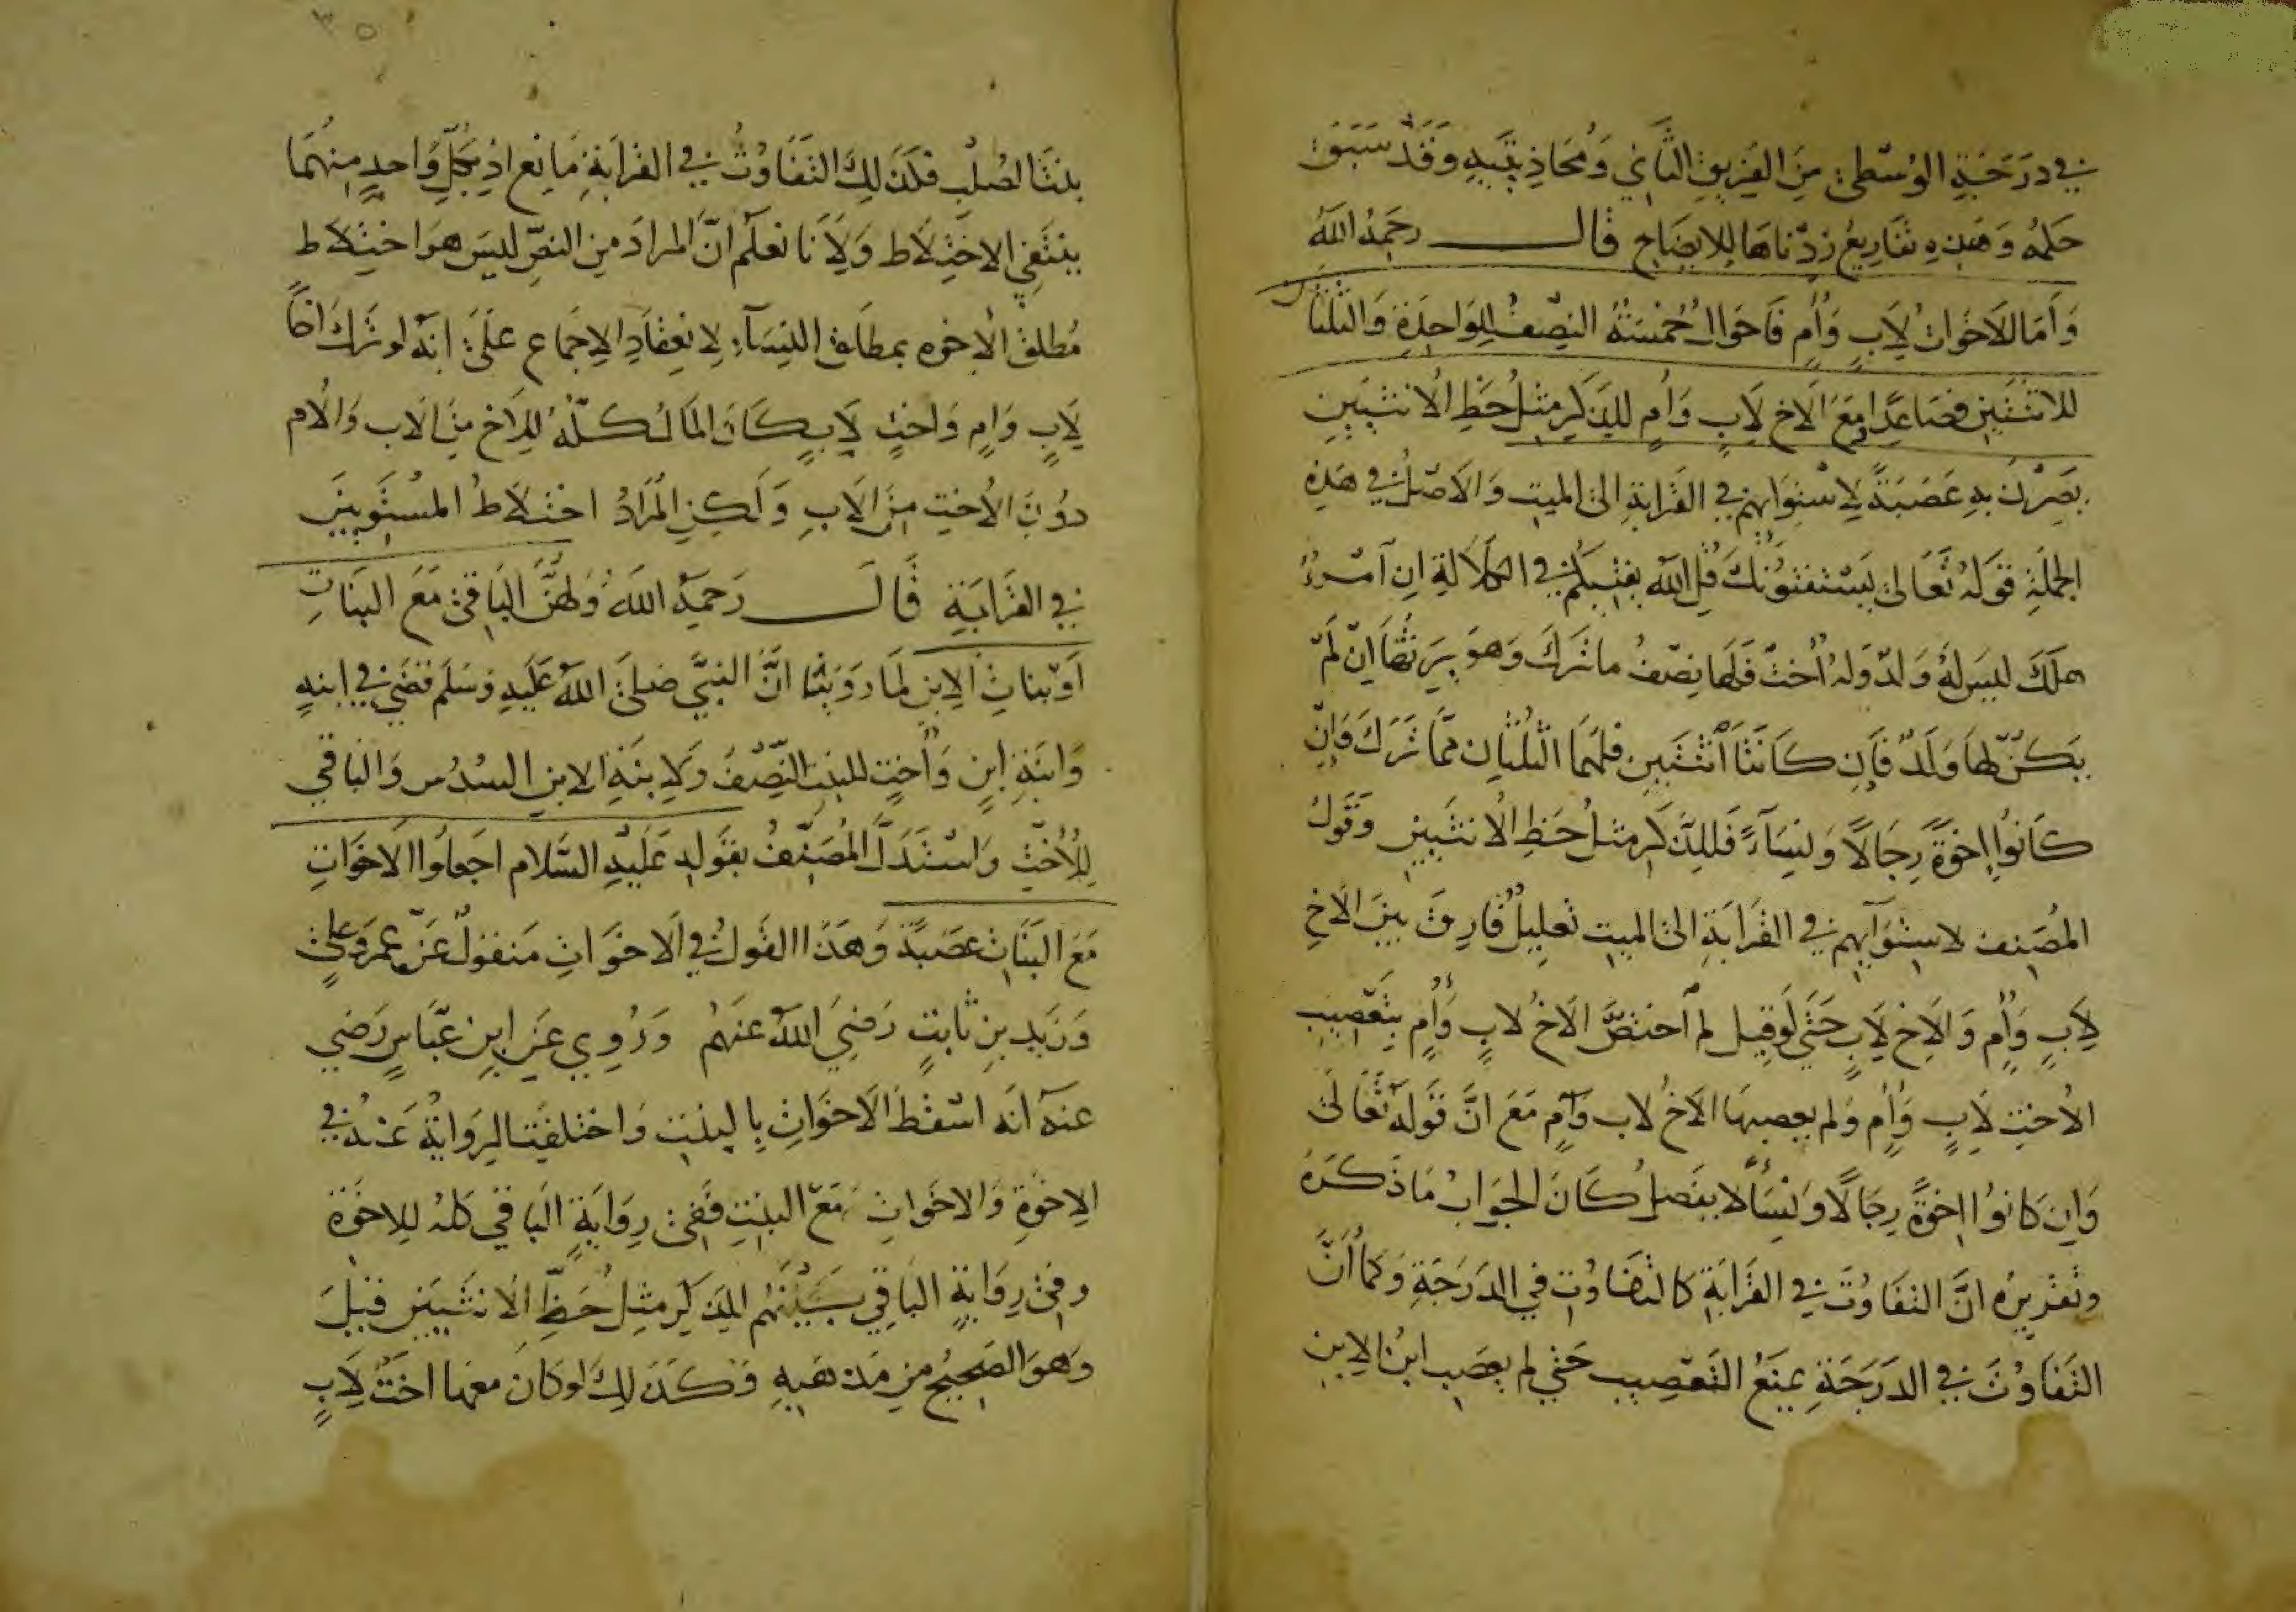 في درجة الوسطى من الفريق الثاني ومحاذيتيه وقد سبق
حكمه وهذه تفاريع زدناها للايضاح قال رحمه الله
وأما الأخوات لأب وأم فأحوال خمسة النصف للواحدة والثلثان
للاثنتين فصاعدا ومع الأخ لأب وأم للذكر مثل حظ الأنثيين
يصرن به عصبة لاستوائهم في القرابة الى الميت والاصل في هذه
الجملة قوله تعالى يستفتونك قل الله يفتيكم في الكلالة ان امرؤ
هلك ليس له ولد وله أخت فلها نصف ما ترك وهو يرثها ان لم
يكن لها ولد فإن كانتا اثنتين فلهما الثلثان مما ترك وإن
كانوا إخوة رجالا ونساء فللذكر مثل حظ الأنثيين وقول
المصنف لاستوآيهم في القرابة الى الميت تعليل فارق بين الأخ
لأب وأم والأخ لأب حتى لو قيل لم اختص الأخ لأب وأم بتعصيب
الأخت لأب وأم ولم يعصبها الأخ لاب وأم مع ان قوله تعالى
وان كانوا اخوة رجالا ونساء لا يفصل كان الجواب ما ذكره
وتقريره ان التفاوت في القرابة كالتفاوت في الدرجة وكما أن
التفاوت في الدرجة يمنع التعصيب حتى لم يعصب ابن الابن
٣٥
بنت الصلب فكذلك التفاوت في القرابة مانع اذ بكل واحد منهما
ينتفي الاختلاط ولأنا نعلم ان المراد من النص ليس هو اختلاط
مطلق الأخوه بمطلق النسآء لانعقاد الإجماع على انه لو ترك اخا
لأب وأم واخت لأب كان المال كله للأخ من الاب والأم
دون الأخت من الأب ولكن المراد اختلاط المستويين
في القرابة قال رحمه الله ولهن الباقي مع البنات
أو بنات الابن لما روينا ان النبي صلى الله عليه وسلم قضى في ابنه
وابنة ابن وأخت للبنت النصف ولابنة الابن السدس والباقي
للأخت واستدل المصنف بقوله عليه السلام اجعلوا الأخوات
مع البنات عصبة وهذا القول في الأخوات منقول عن عمر وعلي
وزيد بن ثابت رضي الله عنهم وروي عن ابن عباس رضي
عنه انه اسقط الأخوات بالبنت واختلفت الرواية عنه في
الاخوة والاخوات مع البنت ففي رواية الباقي كله للاخوة
وفي رواية الباقي بينهم للذكر مثل حظ الأنثيين قيل
وهو الصحيح من مذهبه وكذلك لو كان معها اخت لأب